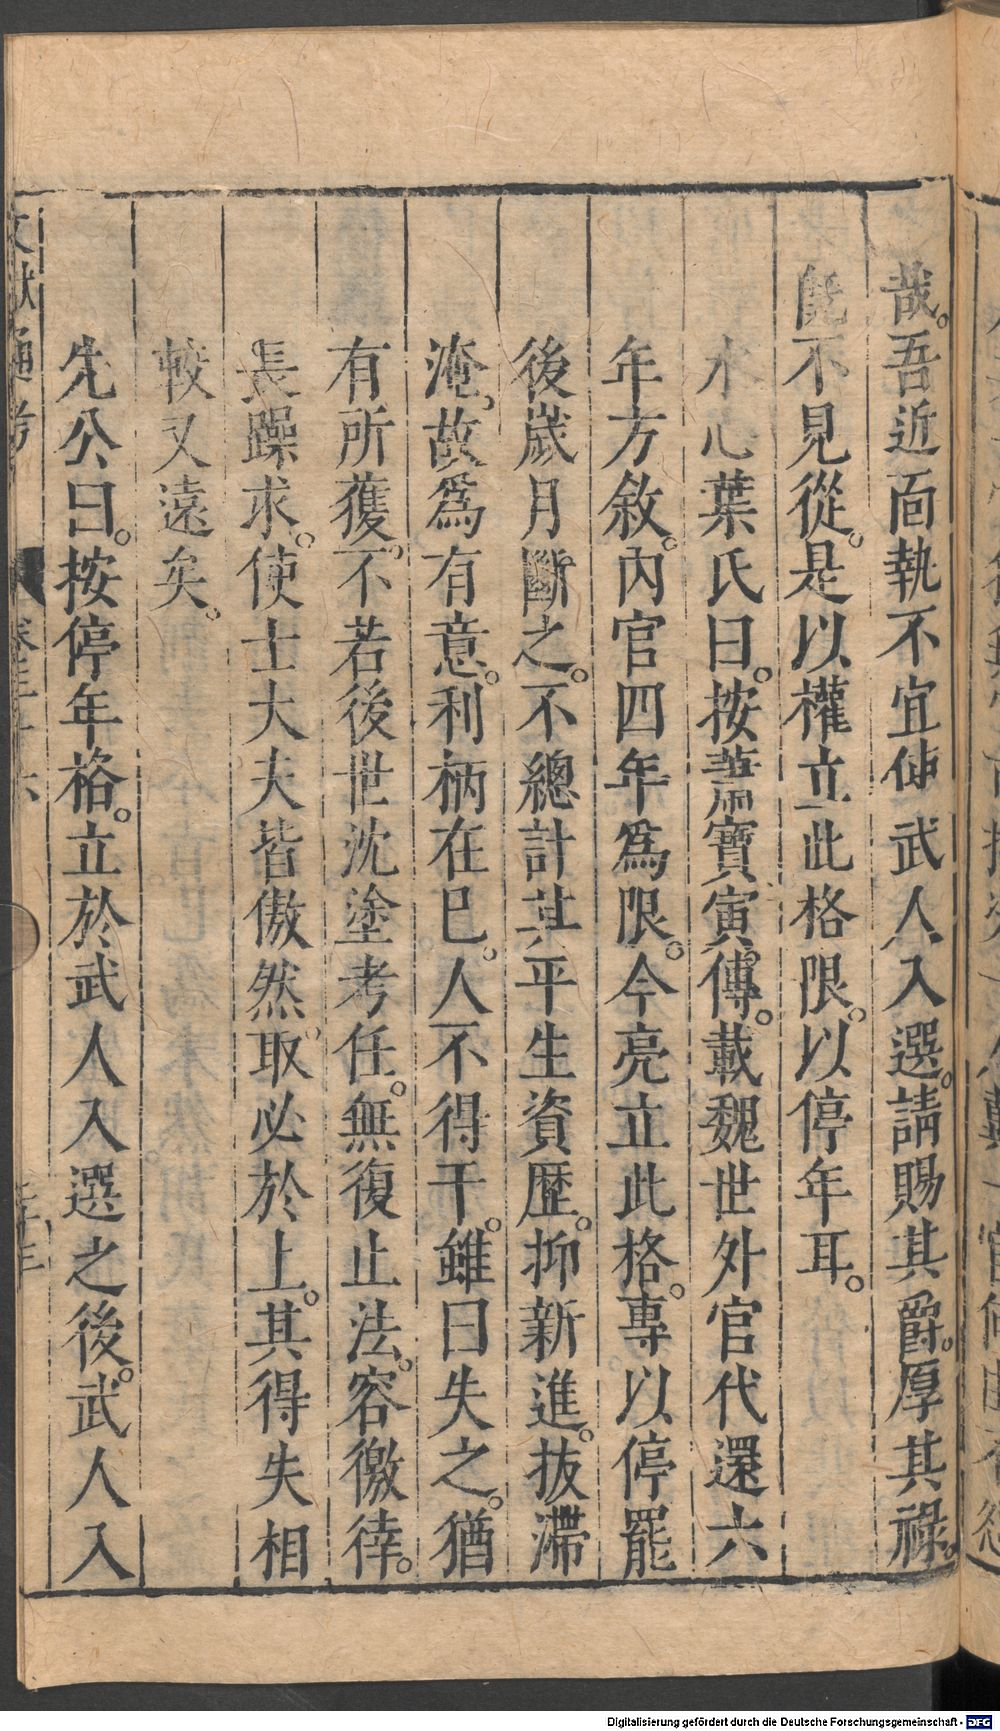 哉。吾近面執不宜使武人入選。請賜其爵。厚其祿。
既不見從。是以權立此格限。以停年耳。
水心葉氏曰。按蕭寶寅傳。載魏世外官代還六
年方敘。內官四年爲限。今亮立此格。專以停罷
後歲月斷之。不總計其平生資歷。抑新進。拔滯
淹。故爲有意。利柄在巳。人不得干。雖曰失之。猶
有所獲。不若後世沈塗考任。無復止法。容徼倖。
長躁求。使士大夫皆傲然取必於上。其得失相
較又遠矣。
先公曰。按停年格。立於武人入選之後。武人入
文獻通考
Digitalisierung gefördert durch die Deutsche Forschungsgemeinschaft - DFG